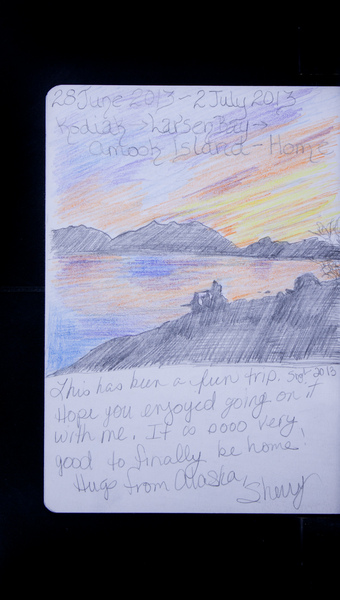 28 June 2013 - 2 July 2013
Kodiak → Larsen Bay →
Amook Island - Home
This has been a fun trip. Sept 2013
Hope you enjoyed going on it
with me. It is oooo very
good to finally be home!
Hugs from Alaska,
Sherry